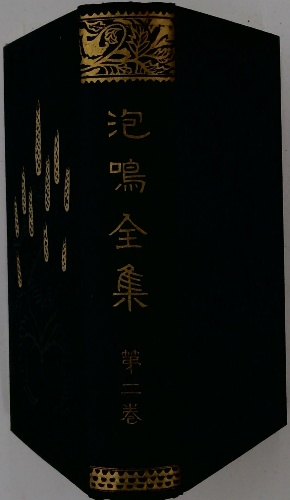 泡鳴全集
第二巻